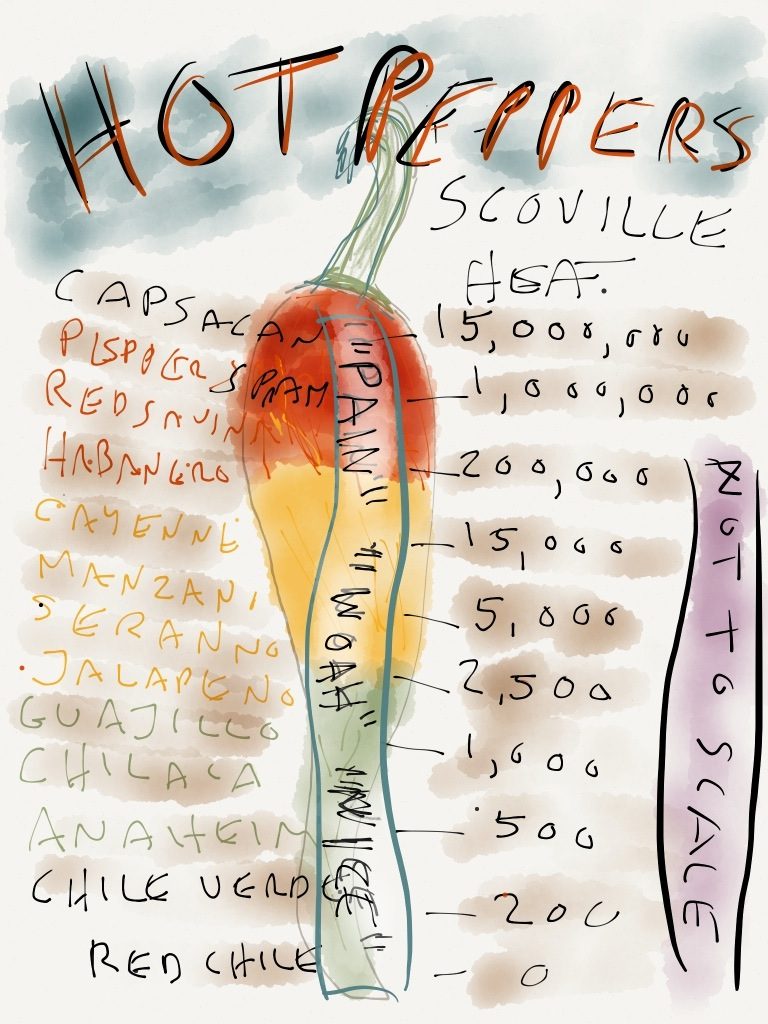 HOT PEPPERS
SCOVILLE
HEAT.
CAPSACAN
PEPPER SPRAM
RED SAVINA
HABANERO
CAYENNE
MANZANI
SERANNO
JALAPENO
GUAJILLO
CHILACA
ANAHEIM
CHILE VERDE
RED CHILE
"PAIN"
"WOAH"
"NICE"
15,000,000
1,000,000
200,000
15,000
5,000
2,500
1,000
500
200
0
NOT TO SCALE